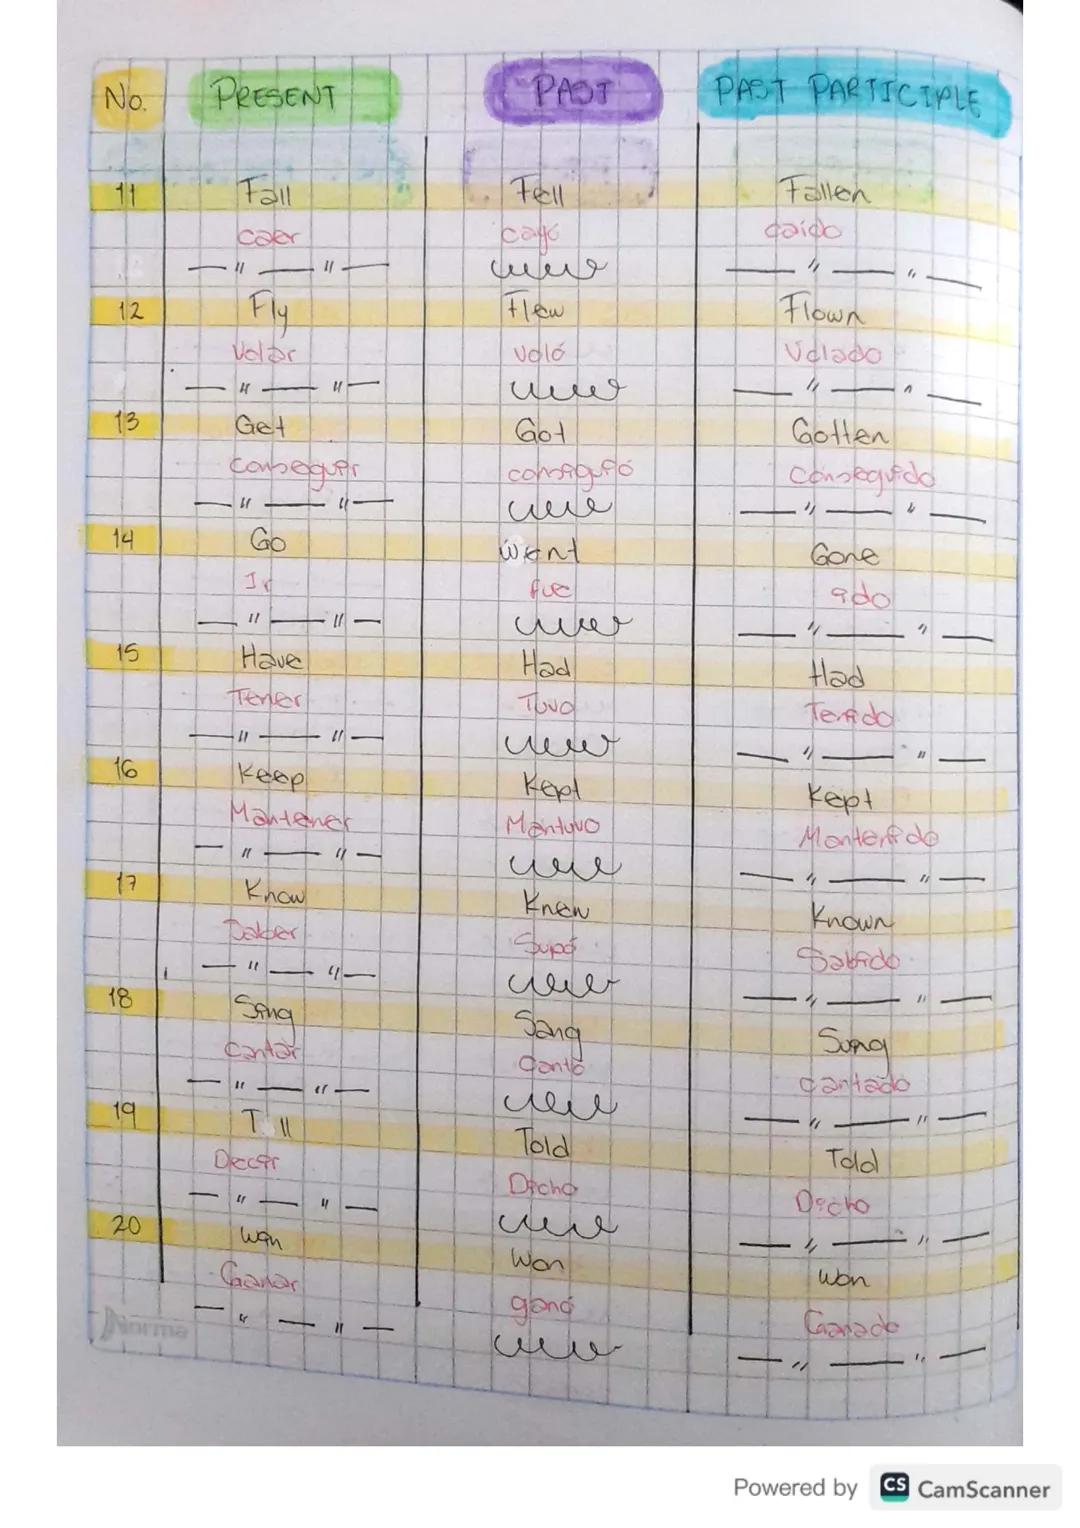 No. PRESENT PAST PAST PARTICIPLE
11 Fall Fell Fallen
caer cayó caido
12 Fly Flew Flown
Volar voló Volado
13 Get Got Gotten
conseguir consiguió conseguido
14 Go Went Gone
Ir fue ido
15 Have Had Had
Tener Tuvo Tenido
16 Keep Kept Kept
Mantener Mantuvo Mantenido
17 Know Knew Known
Saber Supó Sabido
18 Sing Sang Sung
cantar cantó cantado
19 T ll Told Told
Decir Dicho Dicho
20 Win Won Won
Ganar ganó Ganado
Norma
Powered by CS CamScanner